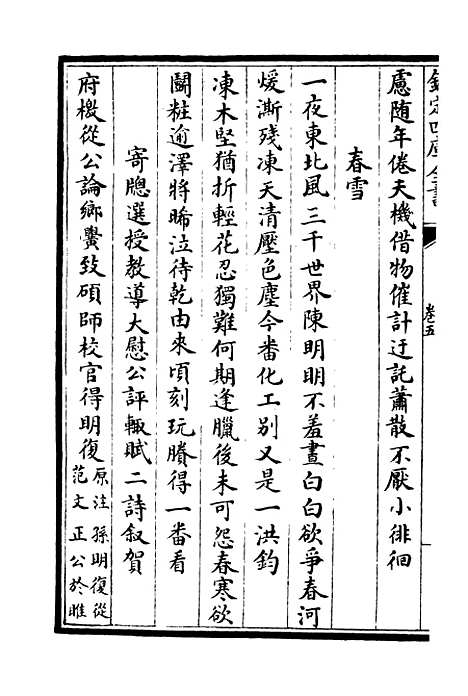 欽定四庫全書
卷五
慮随年倦天機借物催計迂託蕭散不厭小徘徊
春雪
一夜東北風三千世界陳明明不羞晝白白欲爭春河
煖澌殘凍天清壓色塵今番化工别又是一洪鈞
凍木堅猶折輕花忍獨難何期逢臘後未可怨春寒欲
鬭粧逾澤將晞泣待乾由來頃刻玩賸得一番看
寄聰選授教導大慰公評輙賦二詩叙賀
府檄從公論鄉黌致碩師校官得明復原注孫明復從
范文正公於睢